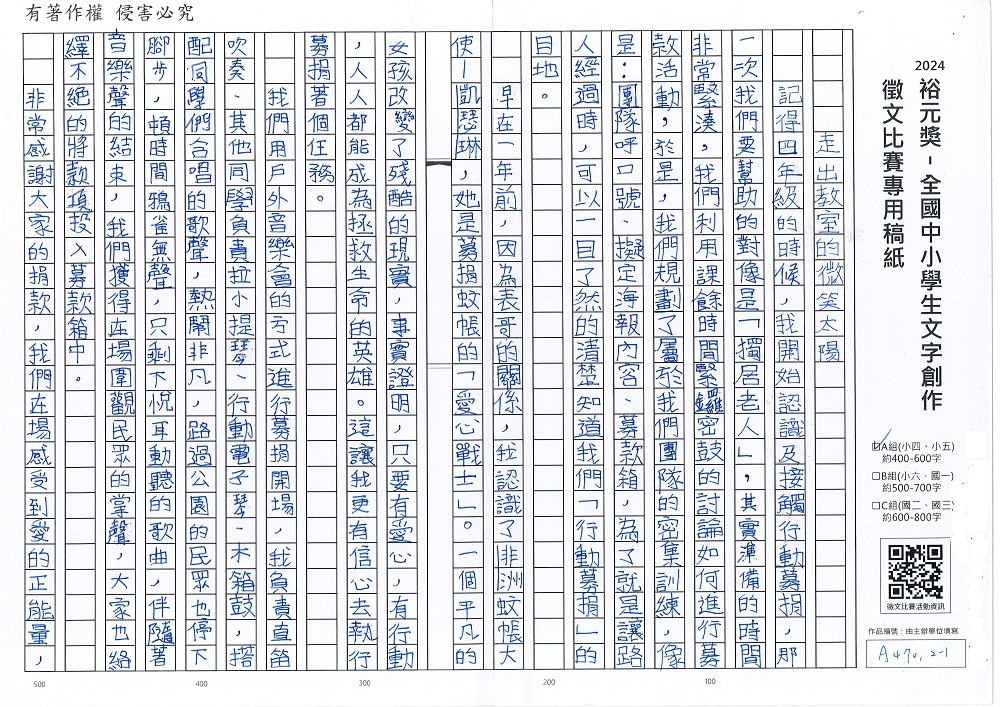 有著作權 侵害必究
2024
裕元獎-全國中小學生文字創作
徵文比賽專用稿紙
A組(小四、小五)
約400-600字
B組(小六、國一)
約500-700字
C組(國二、國三)
約600-800字
徵文比賽活動資訊
作品編號：由主辦單位填寫
A470,2-1
走出教室的微笑太陽
記得四年級的時候，我開始認識及接觸行動募捐，那
一次我們要幫助的對像是「獨居老人」，其實準備的時間
非常緊湊，我們利用課餘時間緊鑼密鼓的討論如何進行募
款活動，於是，我們規劃了屬於我們團隊的密集訓練，像
是：團隊呼口號、擬定海報內容、募款箱，為了就是讓路
人經過時，可以一目了然的清楚知道我們「行動募捐」的
目地。
早在一年前，因為表哥的關係，我認識了非洲蚊帳大
使—凱瑟琳，她是募捐蚊帳的「愛心戰士」。一個平凡的
女孩改變了殘酷的現實，事實證明，只要有愛心，有行動
，人人都能成為拯救生命的英雄。這讓我更有信心去執行
募捐著個任務。
我們用戶外音樂會的方式進行募捐開場，我負責直笛
吹奏、其他同學負責拉小提琴、行動電子琴、木箱鼓，搭
配同學們合唱的歌聲，熱鬧非凡，路過公園的民眾也停下
腳步，頓時間鴉雀無聲，只剩下悅耳動聽的歌曲，伴隨著
音樂聲的結束，我們獲得在場圍觀民眾的掌聲，大家也絡
繹不絕的將款項投入募款箱中。
非常感謝大家的捐款，我們在場感受到愛的正能量，
100
200
300
400
500